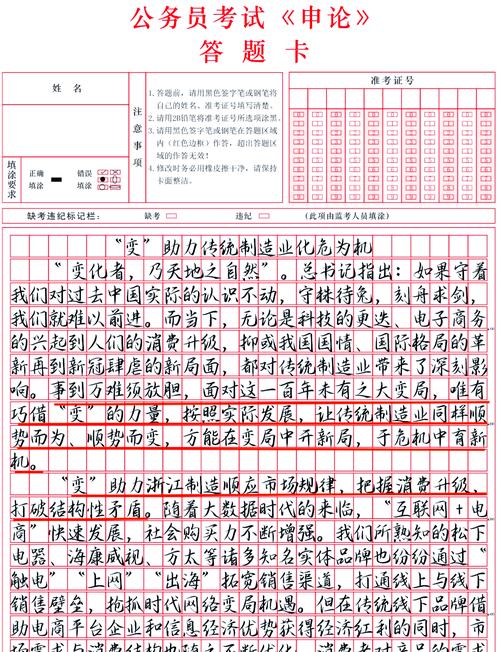 公务员考试《申论》
答题卡
姓 名
准考证号
注意事项
1.答题前，请用黑色签字笔或钢笔将
自己的姓名、准考证号填写清楚。
2.请用2B铅笔将准考证号所选项涂黑。
3.请用黑色签字笔或钢笔在答题区域
内（红色边框）作答，超出答题区
域的作答无效！
4.修改时务必用橡皮擦干净，请保持
卡面整洁。
填涂要求
正确填涂
错误填涂
缺考违纪标记栏：
缺考
违纪
（此项由监考人员填涂）
“变”助力传统制造业化危为机
“变化者，乃天地之自然”。总书记指出：如果守着
我们对过去中国实际的认识不动，守株待兔，刻舟求剑，
我们就难以前进。而当下，无论是科技的更迭、电子商务
的兴起到人们的消费升级，抑或我国国情、国际格局的革
新再到新冠肆虐的新局面，都对传统制造业带来了深刻影
响。事到万难须放胆，面对这一百年未有之大变局，唯有
巧借“变”的力量，按照实际发展，让传统制造业同样顺
势而为、顺势而变，方能在变局中开新局，于危机中育新
机。
“变”助力浙江制造顺应市场规律，把握消费升级，
打破结构性矛盾。随着大数据时代的来临，“互联网+电
商”快速发展，社会购买力不断增强。我们所熟知的松下
电器、海康威视、方太等诸多知名实体品牌也纷纷通过“
触电”“上网”“出海”拓宽销售渠道，打通线上与线下
销售壁垒，抢抓时代网络变局机遇。但在传统线下品牌借
助电商平台企业和信息经济优势获得经济红利的同时，市